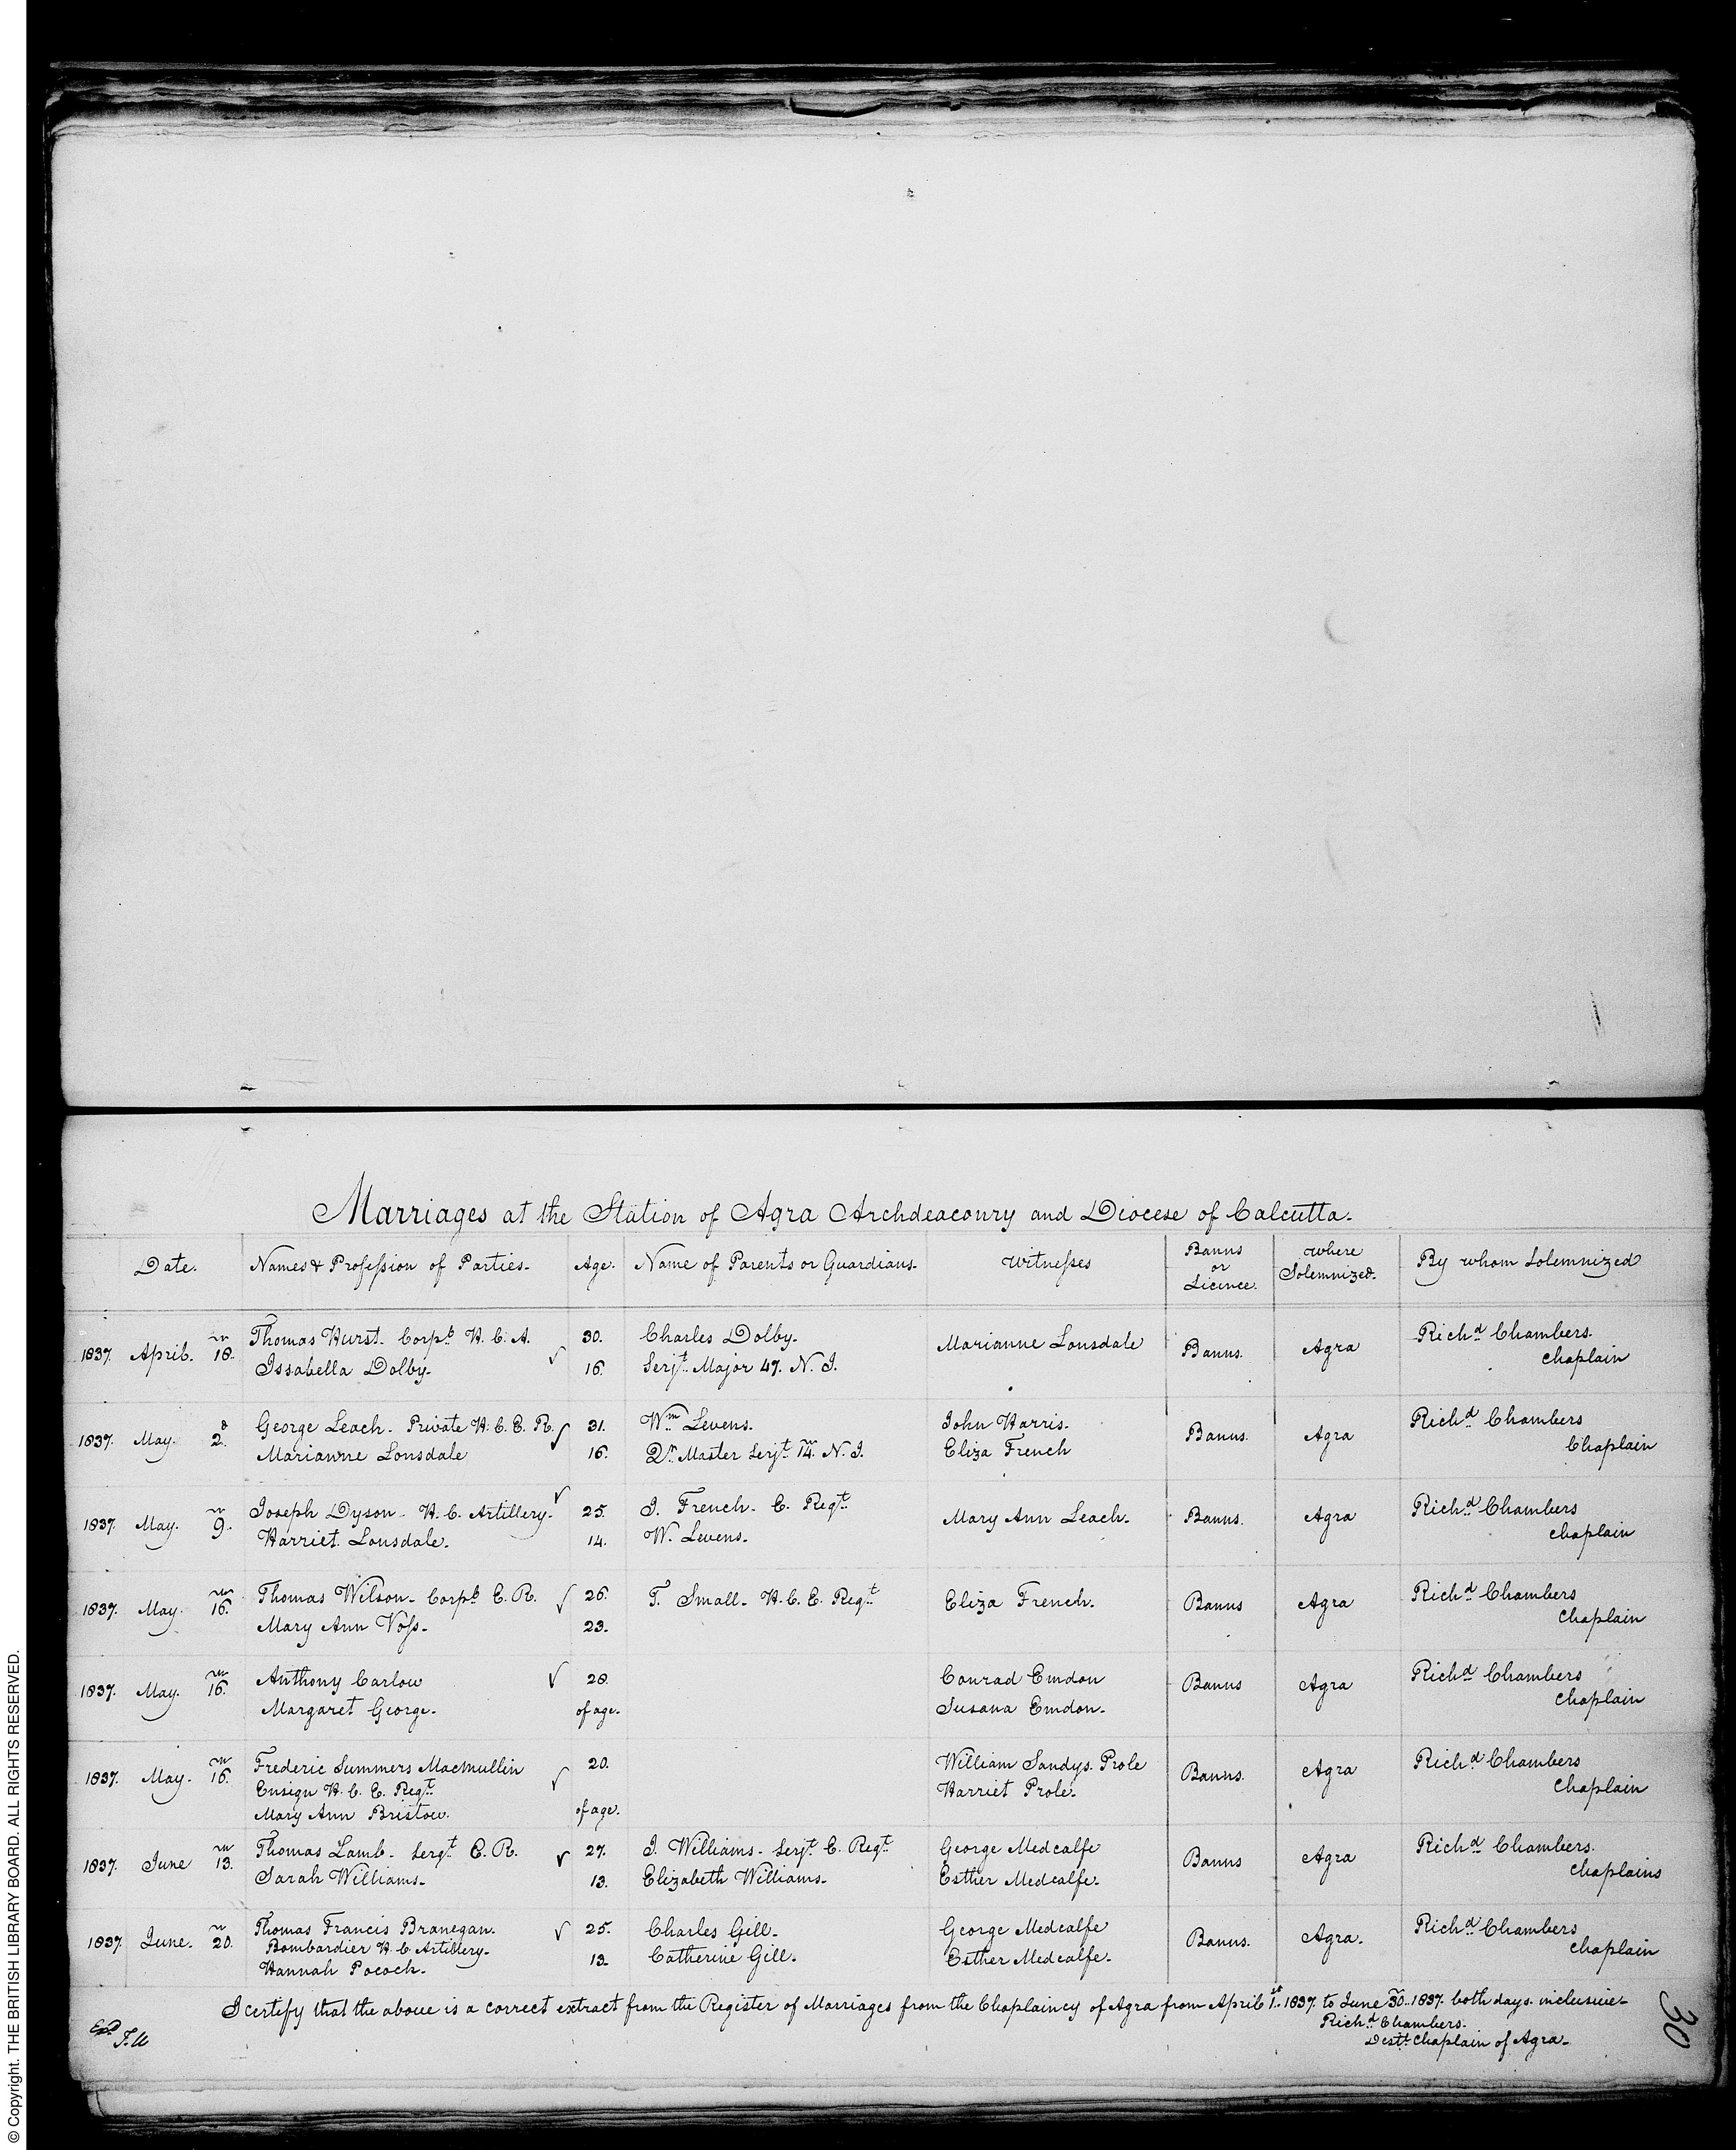 Marriages at the Station of Agra Archdeaconry and Diocese of Calcutta.
Date. Names & Profession of Parties. Age. Name of Parents or Guardians. Witnesses Banns or Licence. Where Solemnized. By whom Solemnized
1837. April. 18th Thomas Hurst. Corpl. H. C. A. 30. Charles Dolby. Marianne Lonsdale Banns. Agra Richd. Chambers.
Issabella Dolby. 16. Serjt. Major 47. N. I. Chaplain
1837. May. 2d George Leach. Private H. C. E. R. 31. Wm. Levens. John Harris. Banns. Agra Richd. Chambers
Marianne Lonsdale 16. Qr. Master Serjt. 14th N. I. Eliza French Chaplain
1837. May. 9th Joseph Dyson. H. C. Artillery. 25. J. French. E. Regt. Mary Ann Leach. Banns. Agra Richd. Chambers
Harriet Lonsdale. 14. W. Levens. Chaplain
1837. May. 16th Thomas Wilson. Corpl. E. R. 26. T. Small. H. C. E. Regt. Eliza French. Banns Agra Richd. Chambers
Mary Ann Voss. 23. Chaplain
1837. May. 16th Anthony Carlow 28. Conrad Emdon Banns Agra Richd. Chambers
Margaret George. of age. Susana Emdon. Chaplain
1837. May. 16th Frederic Summers Macmullin 20. William Sandys Prole Banns. Agra Richd. Chambers
Ensign H. C. E. Regt. Harriet Prole. Chaplain
Mary Ann Bristow. of age.
1837. June 13th Thomas Lamb. Sergt. E. R. 27. J. Williams. Serjt. E. Regt. George Medcalfe Banns Agra Richd. Chambers.
Sarah Williams. 13. Elizabeth Williams. Esther Medcalfe. Chaplains
1837. June. 20th Thomas Francis Branegan. 25. Charles Gill. George Medcalfe Banns. Agra. Richd. Chambers
Bombardier H. C. Artillery. Chaplain
Hannah Pocock. 13. Catherine Gill. Esther Medcalfe.
I certify that the above is a correct extract from the Register of Marriages from the Chaplaincy of Agra from April 1st 1837. to June 30th 1837. both days inclusive.
Richd. Chambers.
Distt. Chaplain of Agra.
Exd
30
© Copyright. THE BRITISH LIBRARY BOARD. ALL RIGHTS RESERVED.